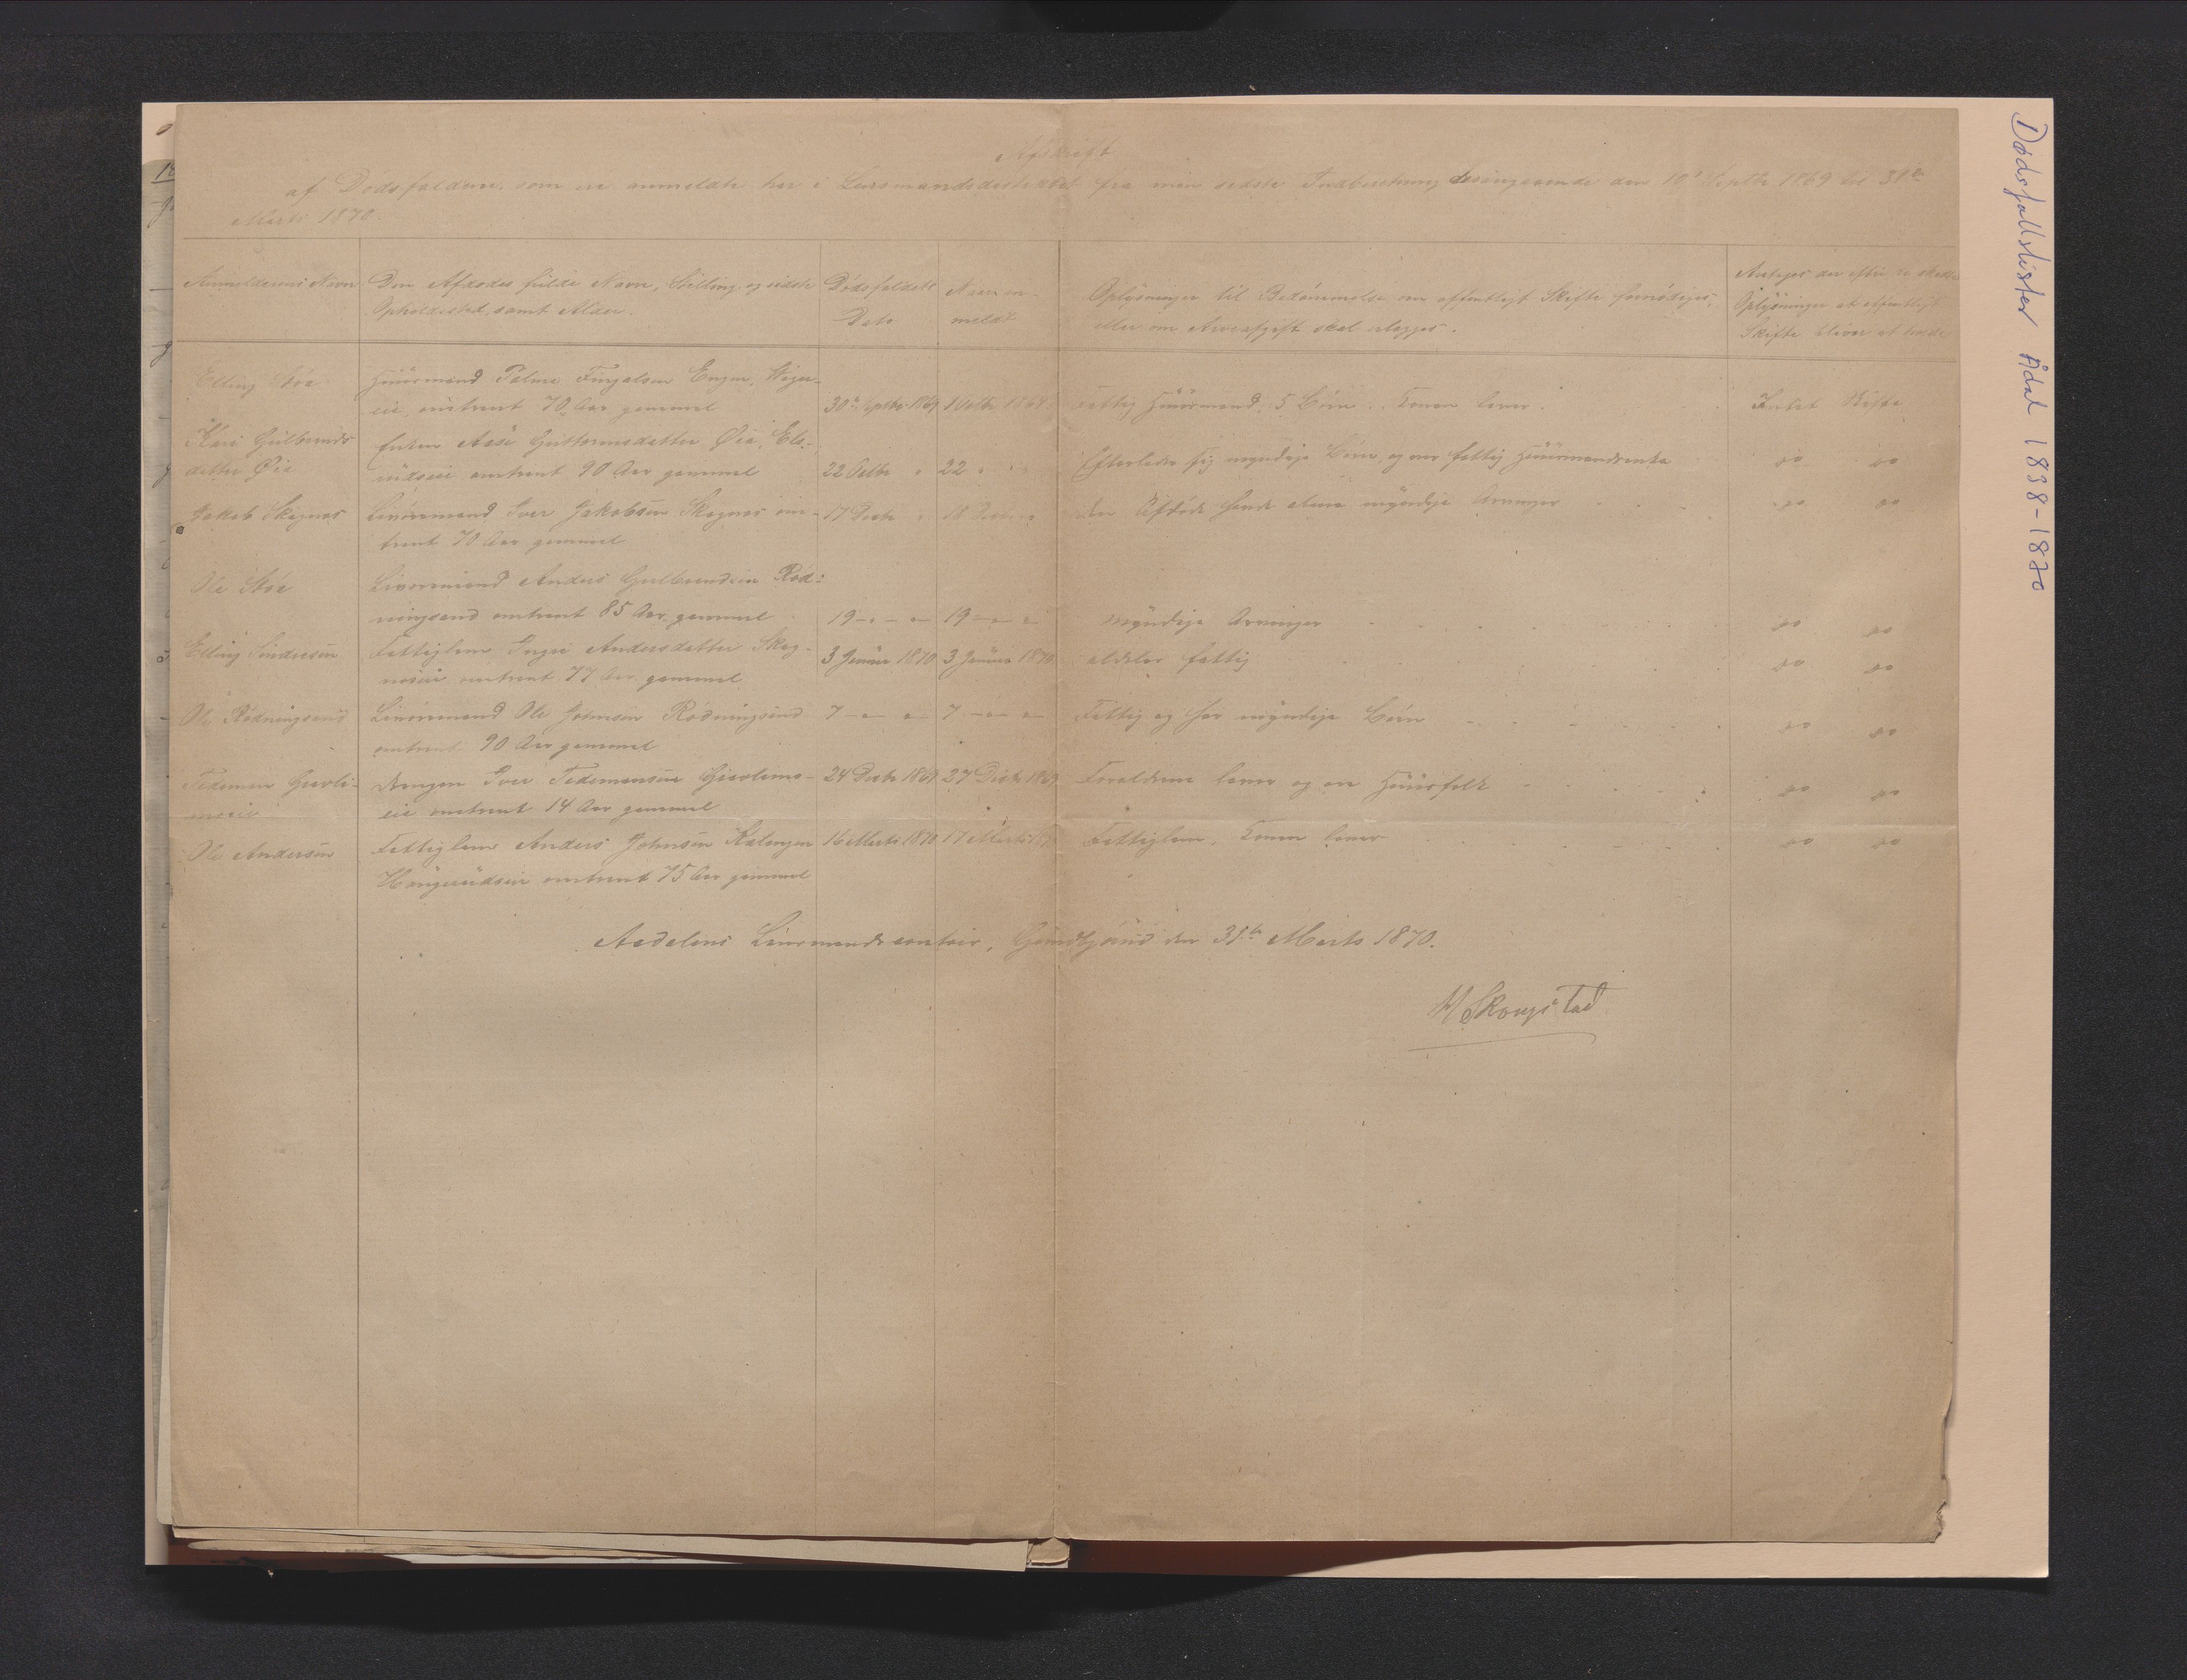 Afskrift
af Dødsfaldene, som ere anmeldte her i Lensmandsdistriktet fra min sidste Indberetning desangaaende den 10de Septbr 1869 til 31te
Marts 1870.
Anmelderens Navn
Den Afdødes fulde Navn, Stilling og sidste
Opholdssted, samt Alder.
Dødsfaldets
Dato
Naar an-
meldt
Oplysninger til Bedømmelse om offentligt Skifte fornødiges,
eller om Arveafgift skal erlægges.
Antages der efter de skedte
Oplysninger at offentligt
Skifte bliver at holde
Elling Støa
Huusmand Palme Fingalsen Enger,
eie, omtrent 70 Aar gammel
30te Septbr 1869
1 Octbr 1869
Fattig Huusmand, 5 Børn. Konen lever.
Intet Skifte
Kari Gulbrands
datter Øie
Enken Aase Guttormsdatter Øie, Els-
rudseie omtrent 90 Aar gammel
22 Octbr "
22 " "
Efterlader sig myndige Børn, og var fattig Huusmandsenke
do do
Jakob Skagnæs
Livøremand Iver Jakobsen Skagnæs om-
trent 70 Aar gammel
17 Decbr "
18 Decbr "
den Afdøde havde alene myndige Arvinger
do do
Ole Støa
Livøremand Anders Gulbrandsen Rød-
ningsand omtrent 85 Aar gammel
19 - " - "
19 - " - "
myndige Arvinger
do do
Elling Sindresen
Fattiglem Inger Andersdatter Skag-
næseie omtrent 77 Aar gammel
3 Januar 1870
3 Januar 1870
aldeles fattig
do do
Ole Rødningsand
Livøremand Ole Johnsen Rødningsand
omtrent 90 Aar gammel
7 - " - "
7 - " - "
Fattig og har myndige Børn
do do
Tideman Gjerli-
moeie
drengen Iver Tidemansen Gjerlimo-
eie omtrent 14 Aar gammel
24 Decbr 1869
27 Decbr 1869
Forældrene lever og ere Huusfolk
do do
Ole Andersen
Fattiglem Anders Johnsen Kalengen
Haugerudseie omtrent 75 Aar gammel
16 Marts 1870
17 Marts 1870
Fattiglem, Konen lever
do do
Aadalens Lensmandscontoir, den 31te Marts 1870.
H Skougstad
Dødsfallslister Ådal 1838-1870